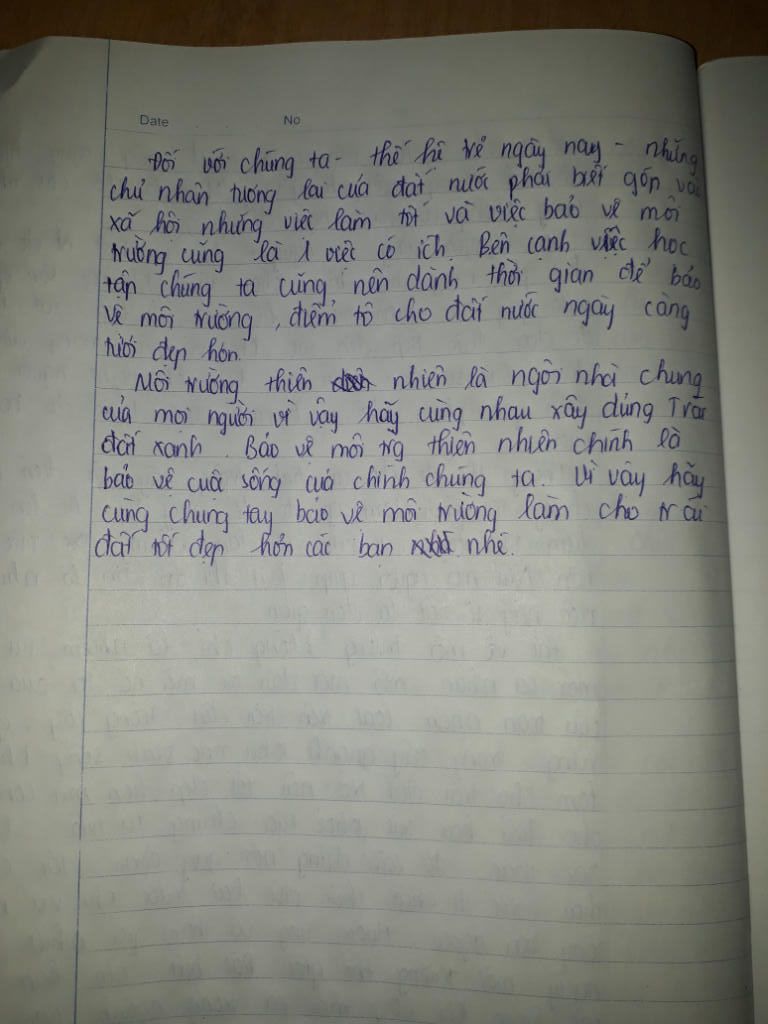 Date No
Đối với chúng ta - thế hệ trẻ ngày nay - những
chủ nhân tương lai của đất nước phải biết góp vào
xã hội những việc làm tốt và việc bảo vệ môi
trường cũng là 1 việc có ích. Bên cạnh việc học
tập chúng ta cũng nên dành thời gian để bảo
vệ môi trường, điểm tô cho đất nước ngày càng
tươi đẹp hơn.
Môi trường thiên nhiên là ngôi nhà chung
của mọi người vì vậy hãy cùng nhau xây dựng Trái
đất xanh. Bảo vệ môi trg thiên nhiên chính là
bảo vệ cuộc sống của chính chúng ta. Vì vậy hãy
cùng chung tay bảo vệ môi trường làm cho trái
đất tốt đẹp hơn các bạn nhé.